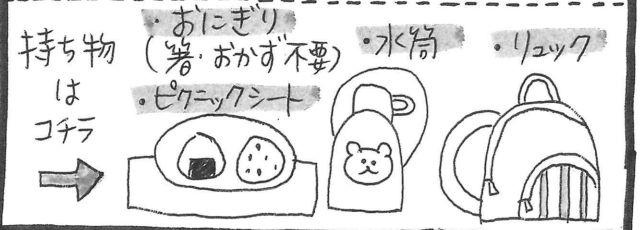 持ち物
は
コチラ
・おにぎり
(箸・おかず不要)
・ピクニックシート
・水筒
・リュック